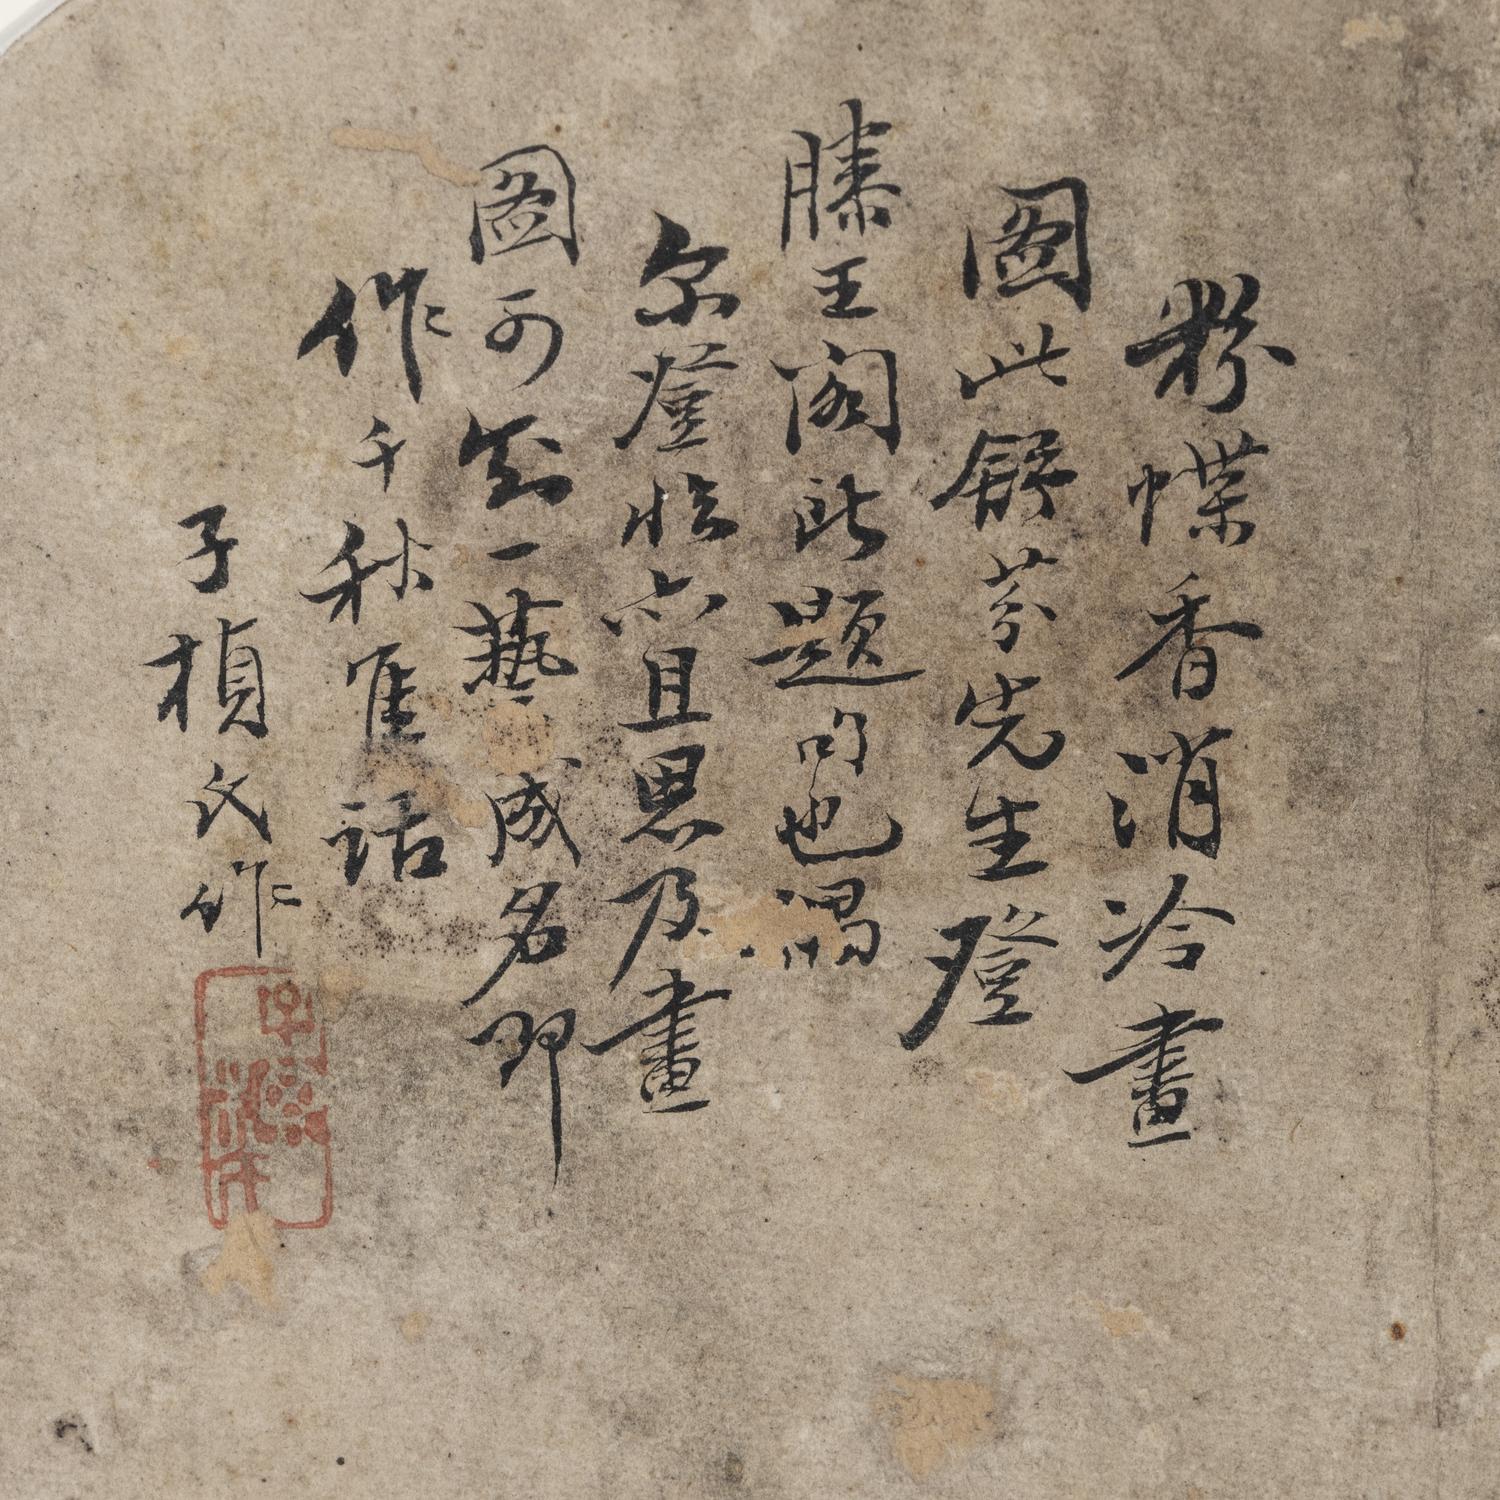 粉蝶香消冷畫
圖此舒芬先生登
滕王閣所題句也
余登臨亦且思及畫
圖可知一藝成名即
作千秋佳話
子楨氏作